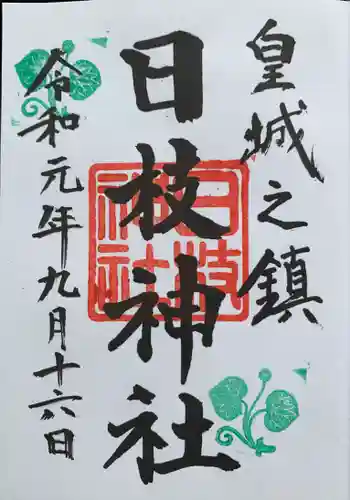 皇城之鎮
日枝神社
令和元年九月十六日
日枝
神社